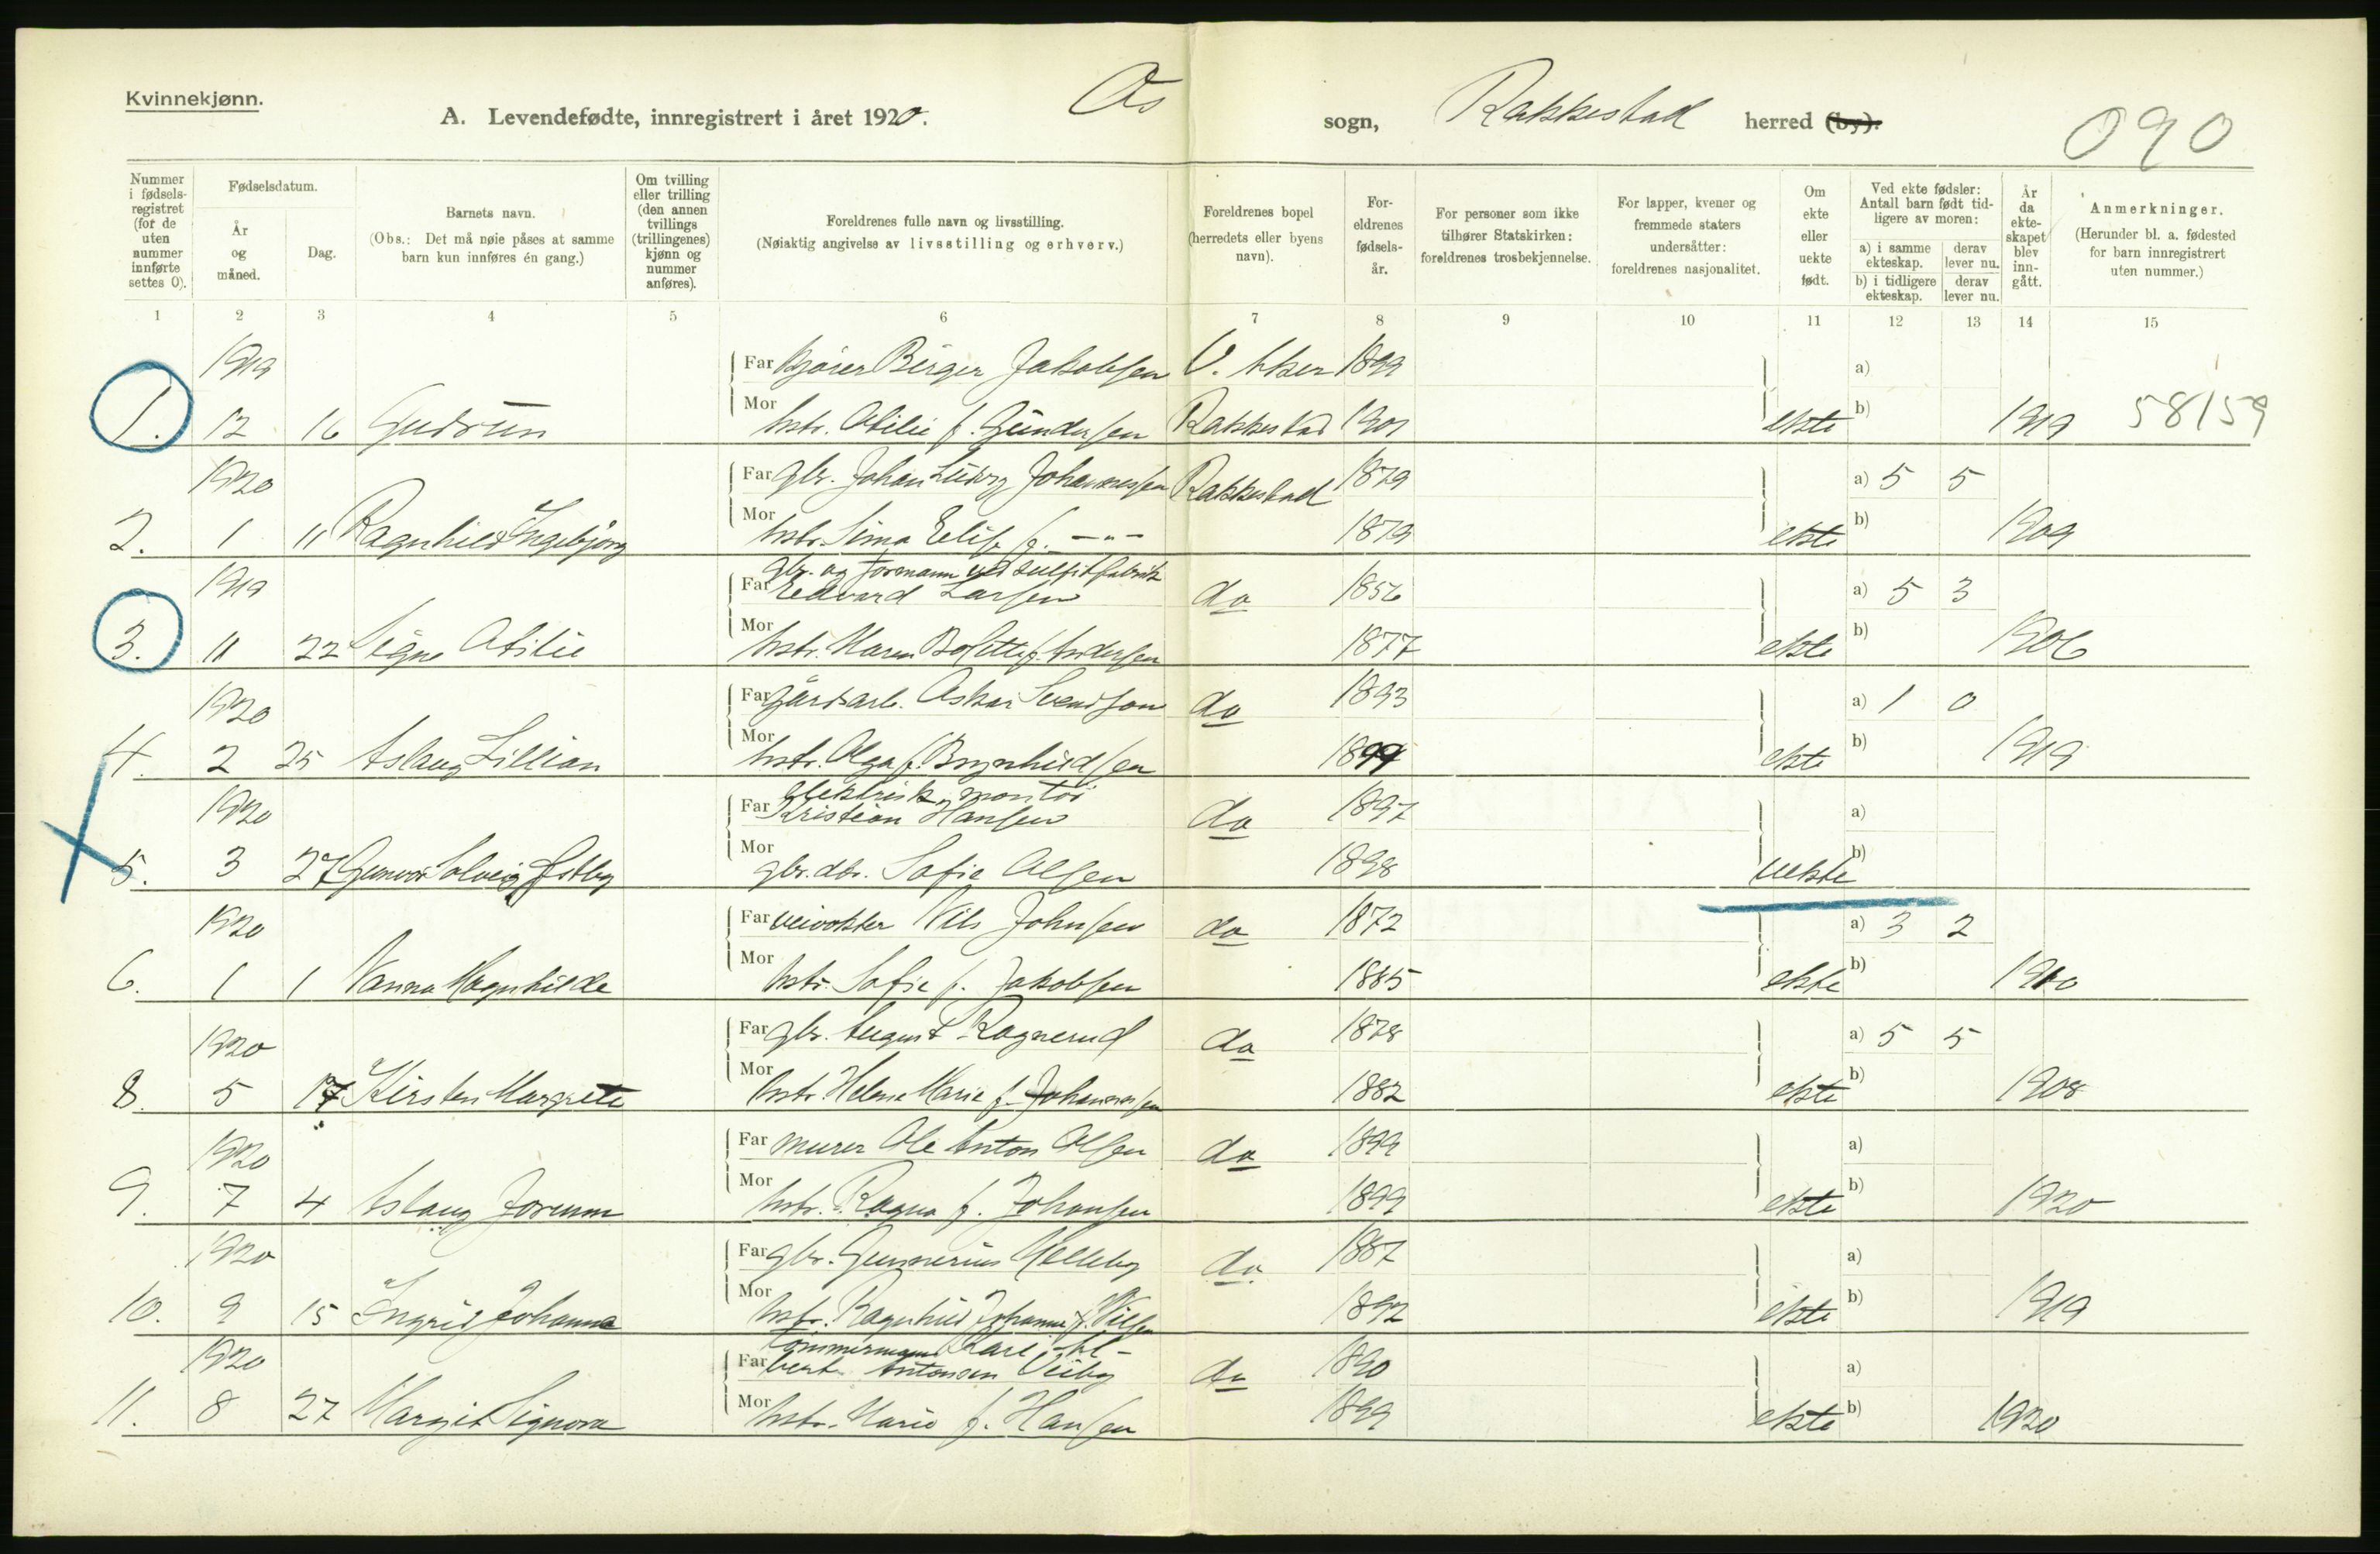 Kvinnekjønn.
A. Levendefødte, innregistrert i året 1920. Os sogn, Rakkestad herred (by).
090
Nummer i fødselsregistret (for de uten nummer innførte settes 0).
Fødselsdatum.
År og måned.
Dag.
Barnets navn.
(Obs.: Det må nøie påses at samme barn kun innføres én gang.)
Om tvilling eller trilling (den annen tvillings (trillingenes) kjønn og nummer anføres).
Foreldrenes fulle navn og livsstilling.
(Nøiaktig angivelse av livsstilling og erhverv.)
Foreldrenes bopel (herredets eller byens navn).
Foreldrenes fødselsår.
For personer som ikke tilhører Statskirken: foreldrenes trosbekjennelse.
For lapper, kvener og fremmede staters undersåtter: foreldrenes nasjonalitet.
Om ekte eller uekte født.
Ved ekte fødsler: Antall barn født tidligere av moren:
a) i samme ekteskap. derav lever nu.
b) i tidligere ekteskap. derav lever nu.
År da ekteskapet blev inngått.
Anmerkninger.
(Herunder bl. a. fødested for barn innregistrert uten nummer.)
1 2 3 4 5 6 7 8 9 10 11 12 13 14 15
1919 Far Birger Jakobsen V. Aker 1899 a)
1. 12 16 Gudrun Mor hstr. Otilie f. Gundersen Rakkestad 1901 ekte b) 1919 58/59
1920 Far gbr. Johan Ludvig Johannessen Rakkestad 1879 a) 5 5
2. 1 11 Ragnhild Ingebjørg Mor hstr. Sina Elise f. -"- 1879 ekte b) 1909
gbr. og formann ved sulfitfabrik
1919 Far Edvard Larsen do 1856 a) 5 3
3. 11 22 Signe Otilie Mor hstr. Maren Bolette f. Andersen 1877 ekte b) 1906
1920 Far gårdsarb. Oskar Svendsen do 1893 a) 1 0
4. 2 25 Aslaug Lillian Mor hstr. Olga f. Brynhildsen 1899 ekte b) 1919
elektrisk montør
1920 Far Kristian Hansen do 1897 a)
5. 3 27 Gunvor Solveig Østby Mor gbr.dtr. Sofie Olsen 1898 uekte b)
1920 Far veivokter Nils Johnsen do 1872 a) 3 2
6. 1 1 Nanna Magnhilde Mor hstr. Sofie f. Jakobsen 1885 ekte b) 1910
1920 Far gbr. August Ragnerud do 1878 a) 5 5
8. 5 17 Kirsten Margrete Mor hstr. Helene Marie f. Johannessen 1882 ekte b) 1908
1920 Far murer Ole Anton Olsen do 1899 a)
9. 7 4 Aslaug Jorunn Mor hstr. Ragna f. Johansen 1899 ekte b) 1920
1920 Far gbr. Gunnerius Melleby do 1887 a)
10. 9 15 Ingrid Johanna Mor hstr. Ragnhild Johanne f. Nilsen 1892 ekte b) 1919
tømmermann Karl Al-
1920 Far bert Antonsen Viiby do 1890 a)
11. 8 27 Margit Signora Mor hstr. Marie f. Hansen 1899 ekte b) 1920